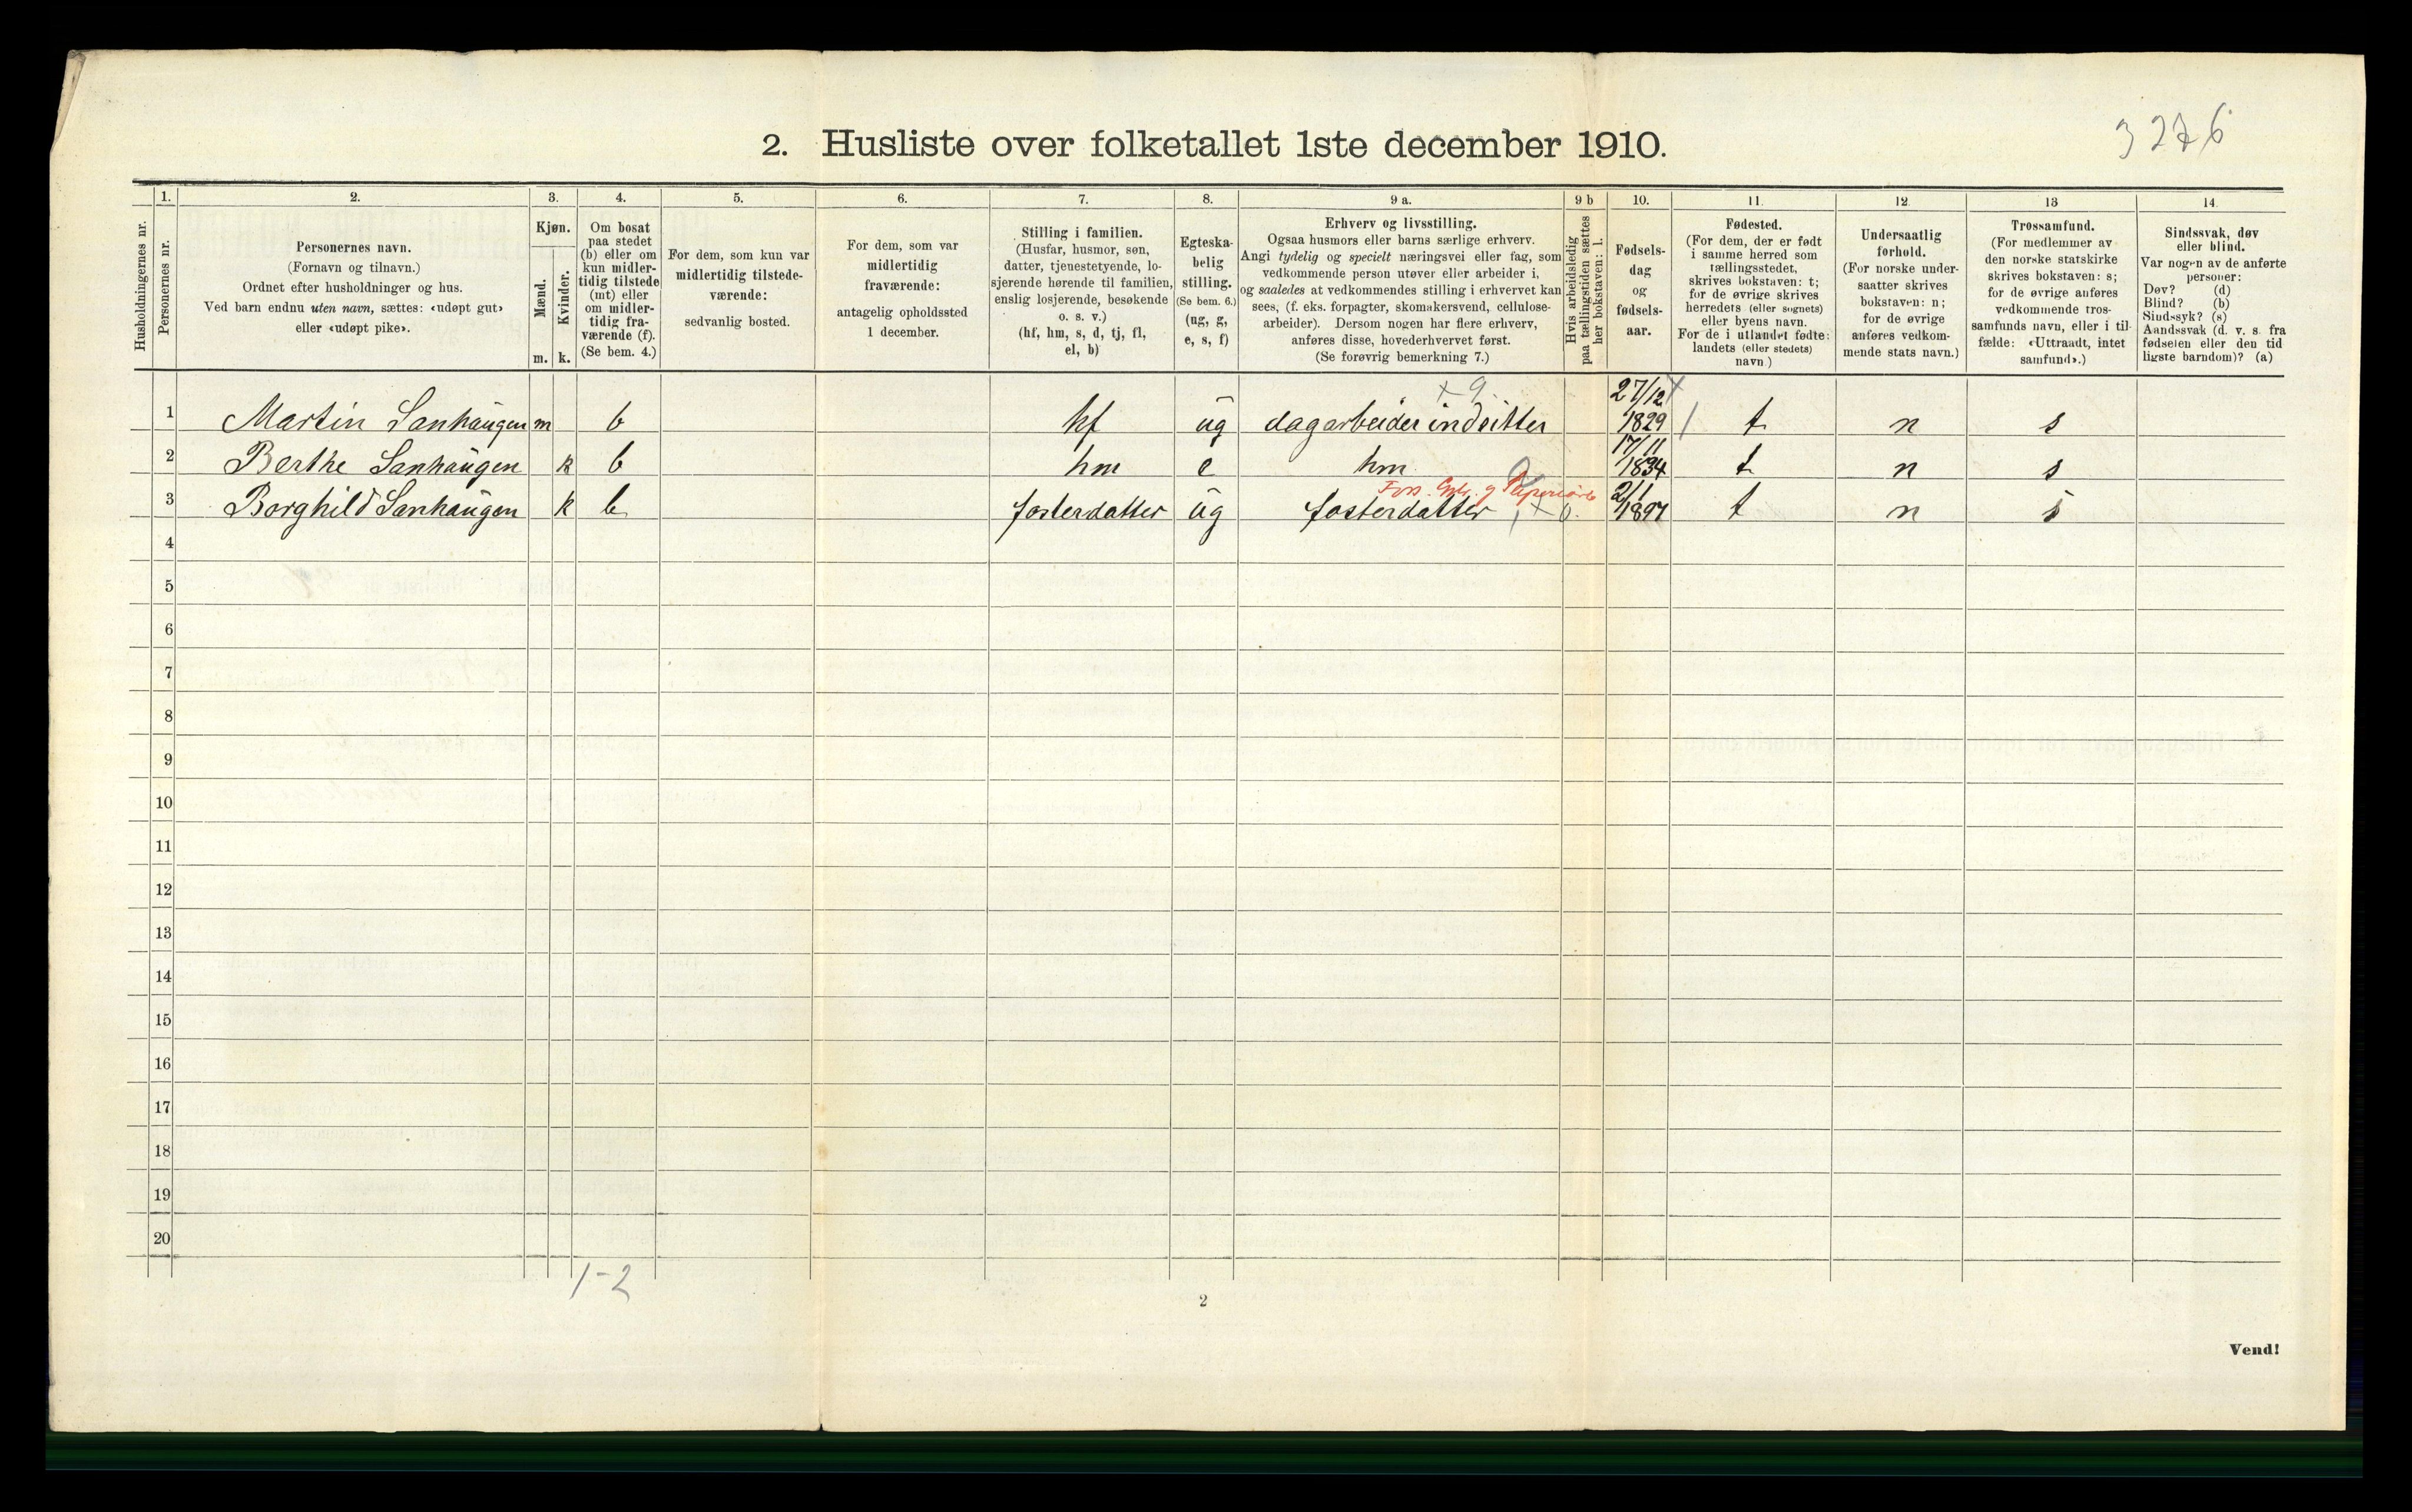 3276
2. Husliste over folketallet 1ste december 1910.
Husholdningernes nr.
1.
Personernes nr.
2.
Personernes navn.
(Fornavn og tilnavn.)
Ordnet efter husholdninger og hus.
Ved barn endnu uten navn, sættes: «udøpt gut»
eller «udøpt pike».
3.
Kjøn.
Mænd.
m.
Kvinder.
k.
4.
Om bosat
paa stedet
(b) eller om
kun midler-
tidig tilstede
(mt) eller
om midler-
tidig fra-
værende (f).
(Se bem. 4.)
5.
For dem, som kun var
midlertidig tilstede-
værende:
sedvanlig bosted.
6.
For dem, som var
midlertidig
fraværende:
antagelig opholdssted
1 december.
7.
Stilling i familien.
(Husfar, husmor, søn,
datter, tjenestetyende, lo-
sjerende hørende til familien,
enslig losjerende, besøkende
o. s. v.)
(hf, hm, s, d, tj, fl,
el, b)
8.
Egteska-
belig
stilling.
(Se bem. 6.)
(ug, g,
e, s, f)
9 a.
Erhverv og livsstilling.
Ogsaa husmors eller barns særlige erhverv.
Angi tydelig og specielt næringsvei eller fag, som
vedkommende person utøver eller arbeider i,
og saaledes at vedkommendes stilling i erhvervet kan
sees, (f. eks. forpagter, skomakersvend, cellulose-
arbeider). Dersom nogen har flere erhverv,
anføres disse, hovederhvervet først.
(Se forøvrig bemerkning 7.)
9 b
Hvis arbeidsledig
paa tællingstiden sættes
her bokstaven: l.
10.
Fødsels-
dag
og
fødsels-
aar.
11.
Fødested.
(For dem, der er født
i samme herred som
tællingsstedet,
skrives bokstaven: t;
for de øvrige skrives
herredets (eller sognets)
eller byens navn.
For de i utlandet fødte:
landets (eller stedets)
navn.)
12.
Undersaatlig
forhold.
(For norske under-
saatter skrives
bokstaven: n;
for de øvrige
anføres vedkom-
mende stats navn.)
13
Trossamfund.
(For medlemmer av
den norske statskirke
skrives bokstaven: s;
for de øvrige anføres
vedkommende tros-
samfunds navn, eller i til-
fælde: «Uttraadt, intet
samfund».)
14.
Sindssvak, døv
eller blind.
Var nogen av de anførte
personer:
Døv? (d)
Blind? (b)
Sindssyk? (s)
Aandssvak (d. v. s. fra
fødselen eller den tid
ligste barndom)? (a)
x 9.
27/12
1 Martin Sanhaugen m b hf ug dagarbeider indsitter 1829 t n s
17/11
2 Berthe Sanhaugen k b hm e hm 1834 t n s
2/1
3 Borghild Sanhaugen k b fosterdatter ug fosterdatter 1897 t n s
4
5
6
7
8
9
10
11
12
13
14
15
16
17
18
19
20
1-2
2
Vend!